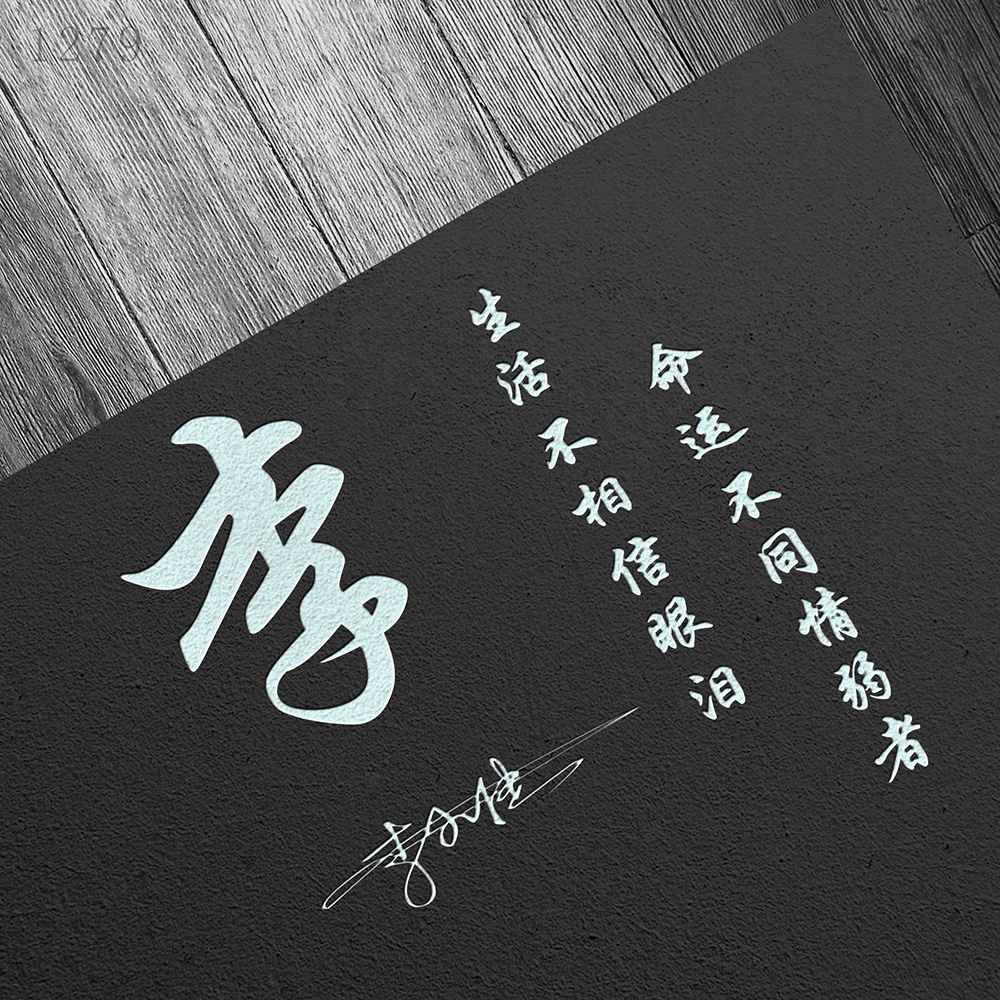 1279
李
生活不相信眼泪
命运不同情弱者